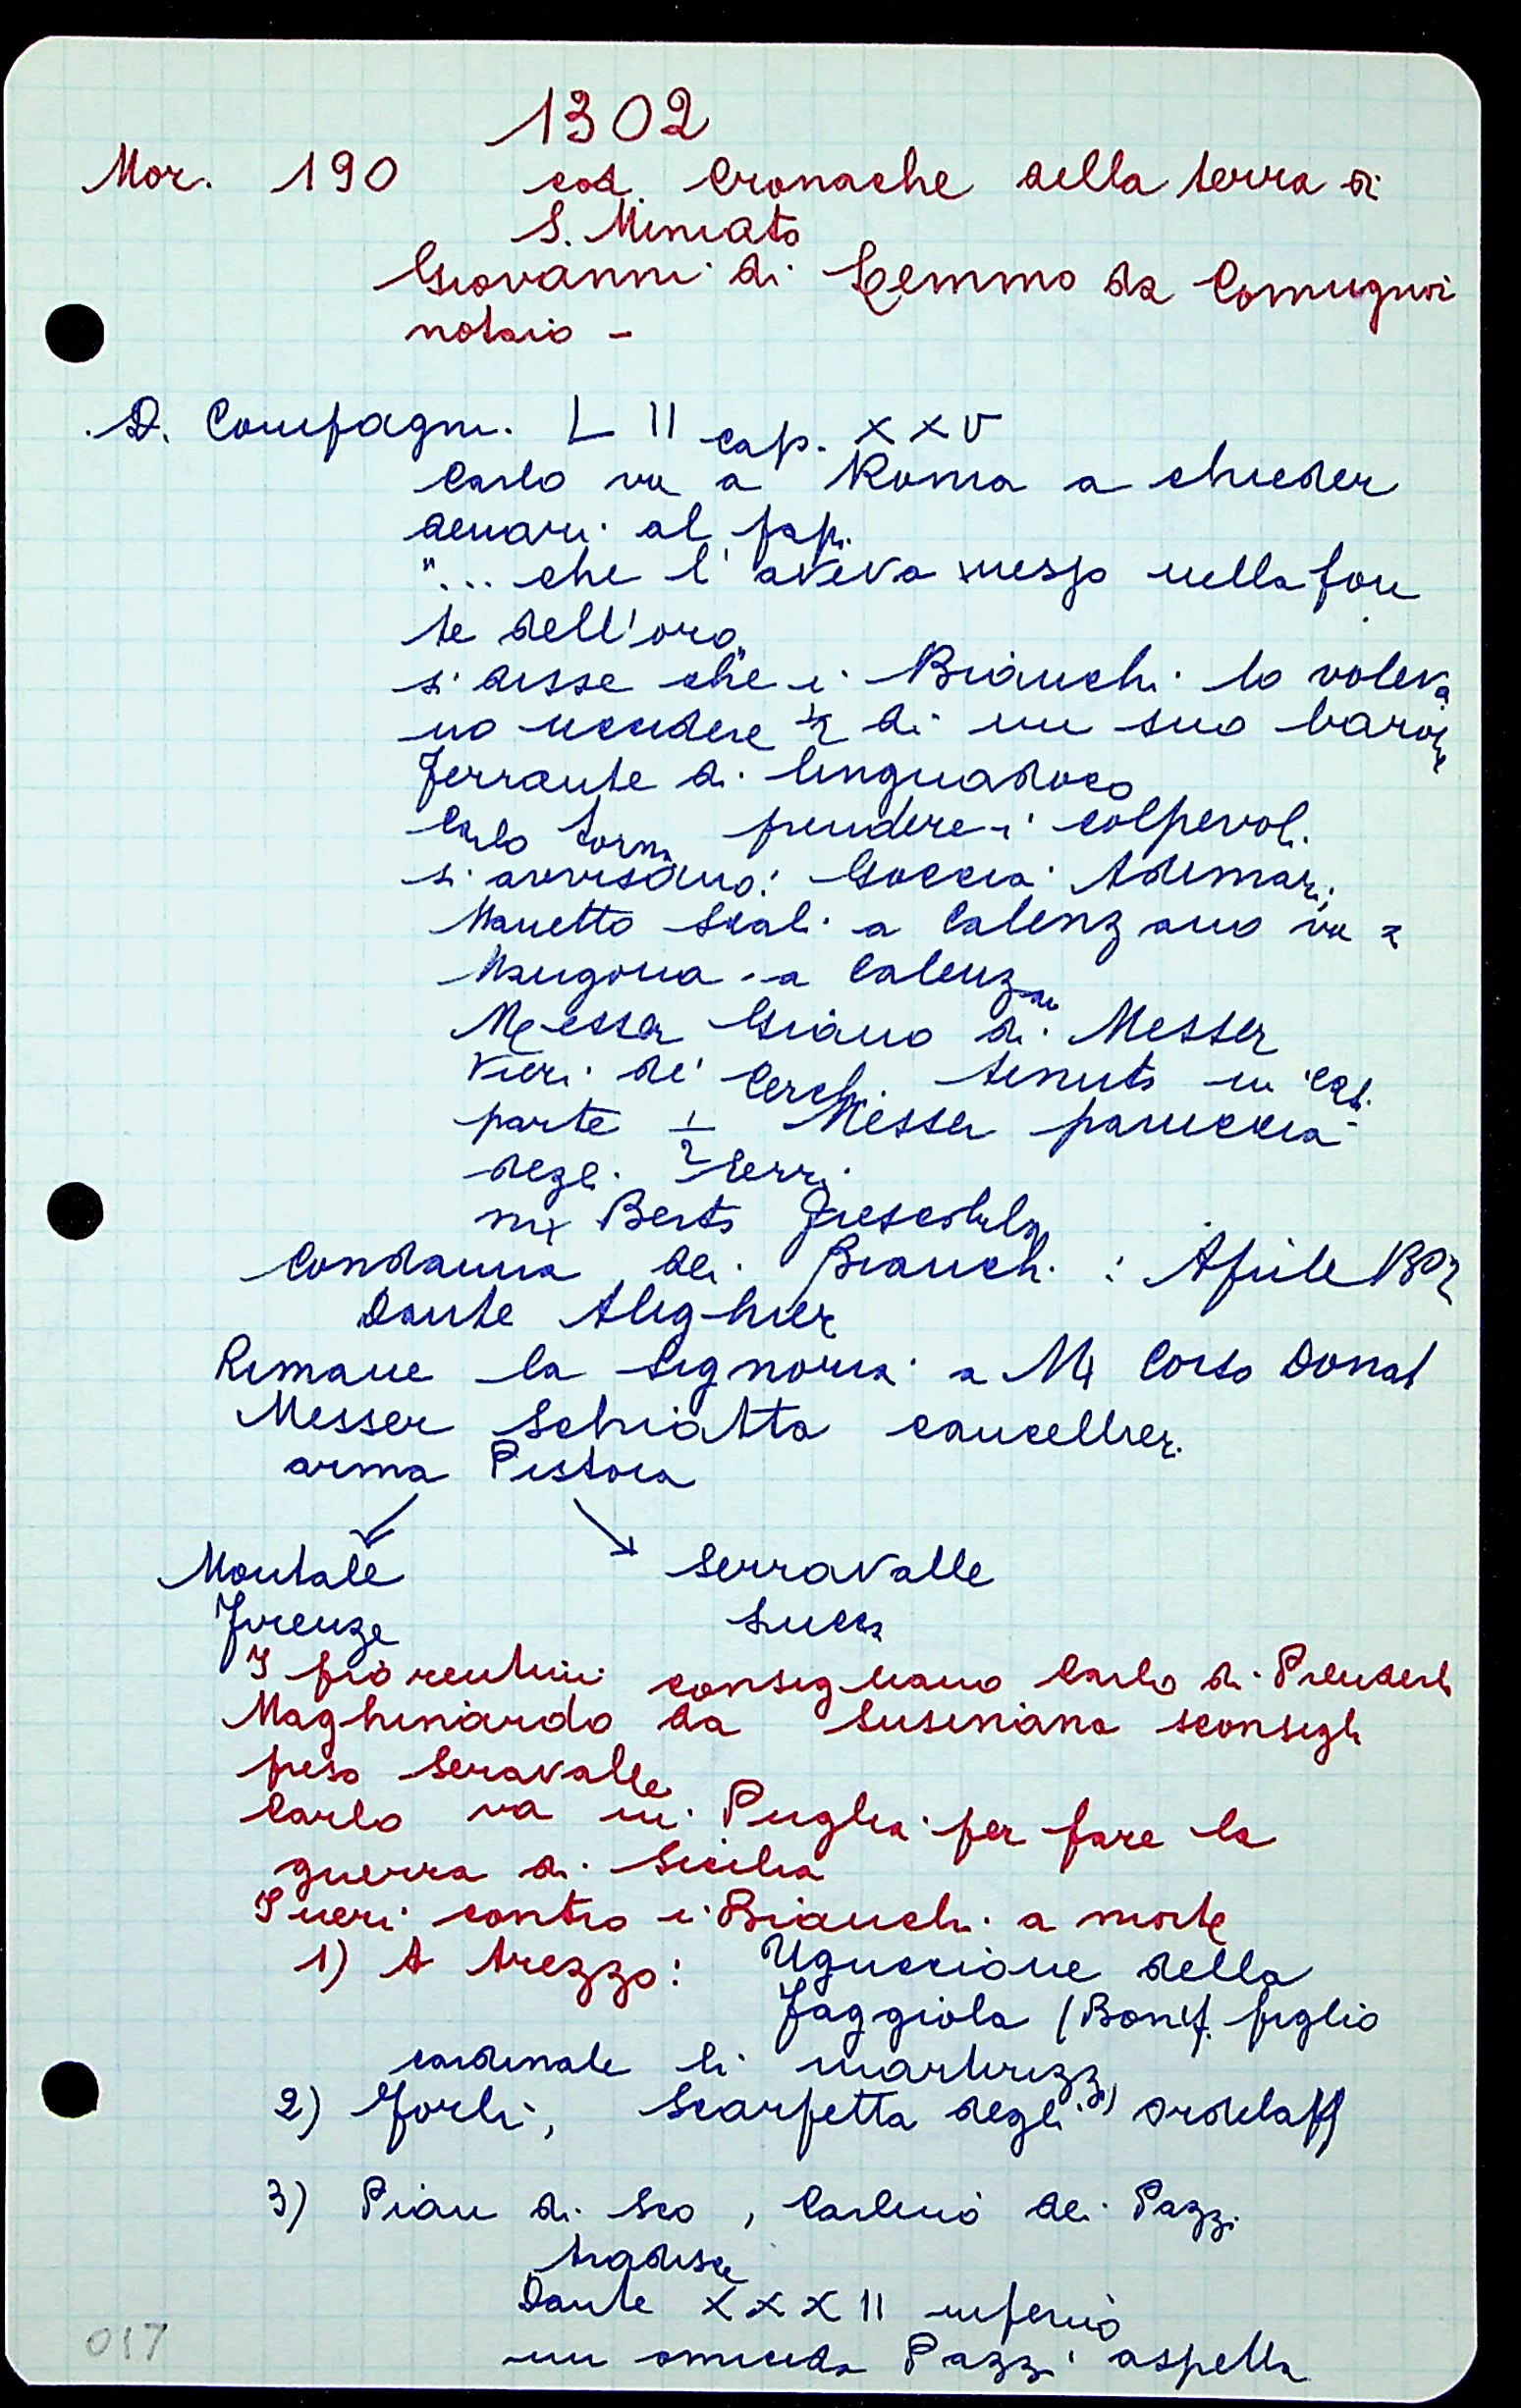 1302
Mor. 190 cod. Cronache della terra di
S. Miniato
Giovanni di Lemmo da Comugnoi
notaio -
D. Compagni. L II cap. XXV
Carlo va a Roma a chieder
denari al pap.
"... che l'aveva messo nella fon
te dell'oro"
si disse che i Bianchi lo voleva
no uccidere ½ di un suo baron
Ferrante di linguadoco
Carlo torna prendere i colpevoli.
si avvisano: Goccia Adimari,
Manetto Scali a Calenzano va a
Mangona a Calenzan
Messer Giano di Messer
Vieri de' Cerchi tenuto in
parte ½ Messer paniccia
degli Erri
Mx Berto Frescobaldi
Condanna dei Bianchi : Aprile 1302
Dante Alighier
Rimane la Signoria a Mx Corso Donat
Messer Schiatta cancellier.
arma Pistoia
Montale Serravalle
Firenze Lucca
I fiorentini consigliano Carlo di Prenderl
Maghinardo da Susinana sconsigli
preso Seravalle
Carlo va in Puglia per fare la
guerra di Sicilia
I neri contro i Bianchi a morte
1) A Arezzo: Uguccione della
Faggiola (Bonif. figlio
cardinale li martirizza)
2) Forlì, Scarpetta degli Ordelaff
3) Pian di Sco, Carlino dei Pazzi
tradisce
Dante XXXII inferno
un omicida Pazzi aspetta
017